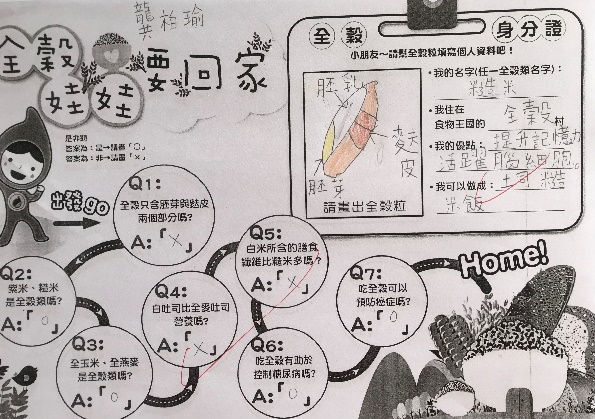 龔柏瑜
全穀娃娃要回家
是非題
答案為:是→請畫「○」
答案為:非→請畫「×」
出發go
Q1:
全穀只含胚芽與麩皮
兩個部分嗎?
A:「×」
Q2:
紫米、糙米
是全穀類嗎?
A:「○」
Q3:
全玉米、全燕麥
是全穀類嗎?
A:「○」
Q4:
白吐司比全麥吐司
營養嗎?
A:「×」
Q5:
白米所含的膳食
纖維比糙米多嗎?
A:「×」
Q6:
吃全穀有助於
控制糖尿病嗎?
A:「○」
Q7:
吃全穀可以
預防癌症嗎?
A:「○」
Home!
全穀身分證
小朋友~請幫全穀粒填寫個人資料吧!
胚乳
麩皮
胚芽
請畫出全穀粒
•我的名字(任一全穀類名字):
糙米
•我住在
食物王國的 全穀村
•我的優點:提升記憶力
活躍腦細胞。
•我可以做成:土司 糙
米飯